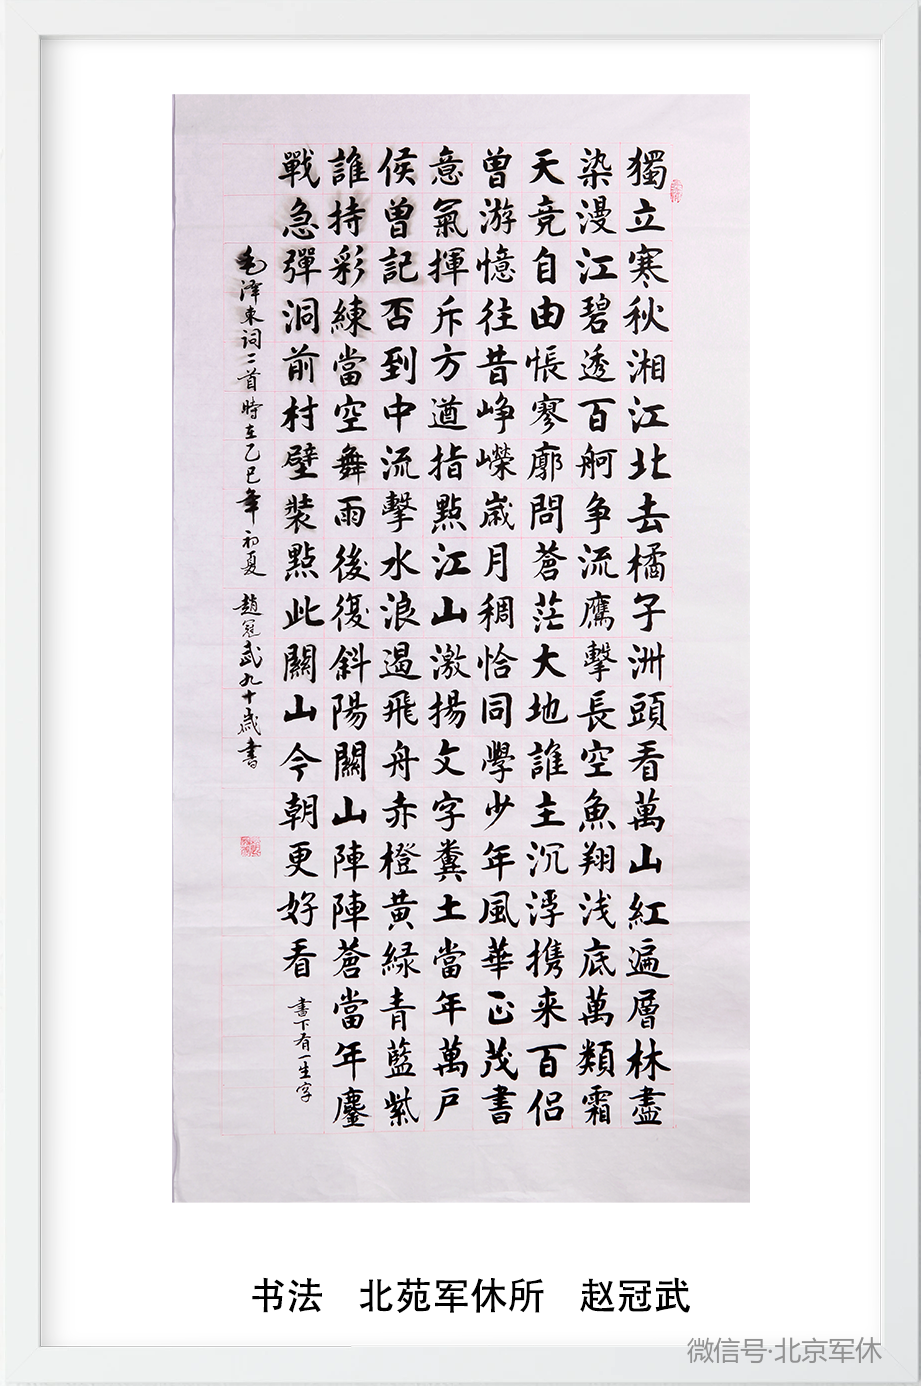 獨立寒秋湘江北去橘子洲頭看萬山紅遍層林盡
染漫江碧透百舸争流鷹擊長空魚翔浅底萬類霜
天竞自由悵寥廓問蒼茫大地誰主沉浮携来百侣
曾游憶往昔峥嶸歲月稠恰同學少年風華正茂書
意氣揮斥方遒指點江山激揚文字糞土當年萬户
侯曾記否到中流擊水浪遏飛舟赤橙黄緑青藍紫
誰持彩練當空舞雨後復斜陽關山陣陣蒼當年鏖
戰急彈洞前村壁裝點此關山今朝更好看 書下有一生字
毛泽東词二首時在乙巳年初夏 趙冠武九十歲書
书法 北苑军休所 赵冠武
微信号·北京军休